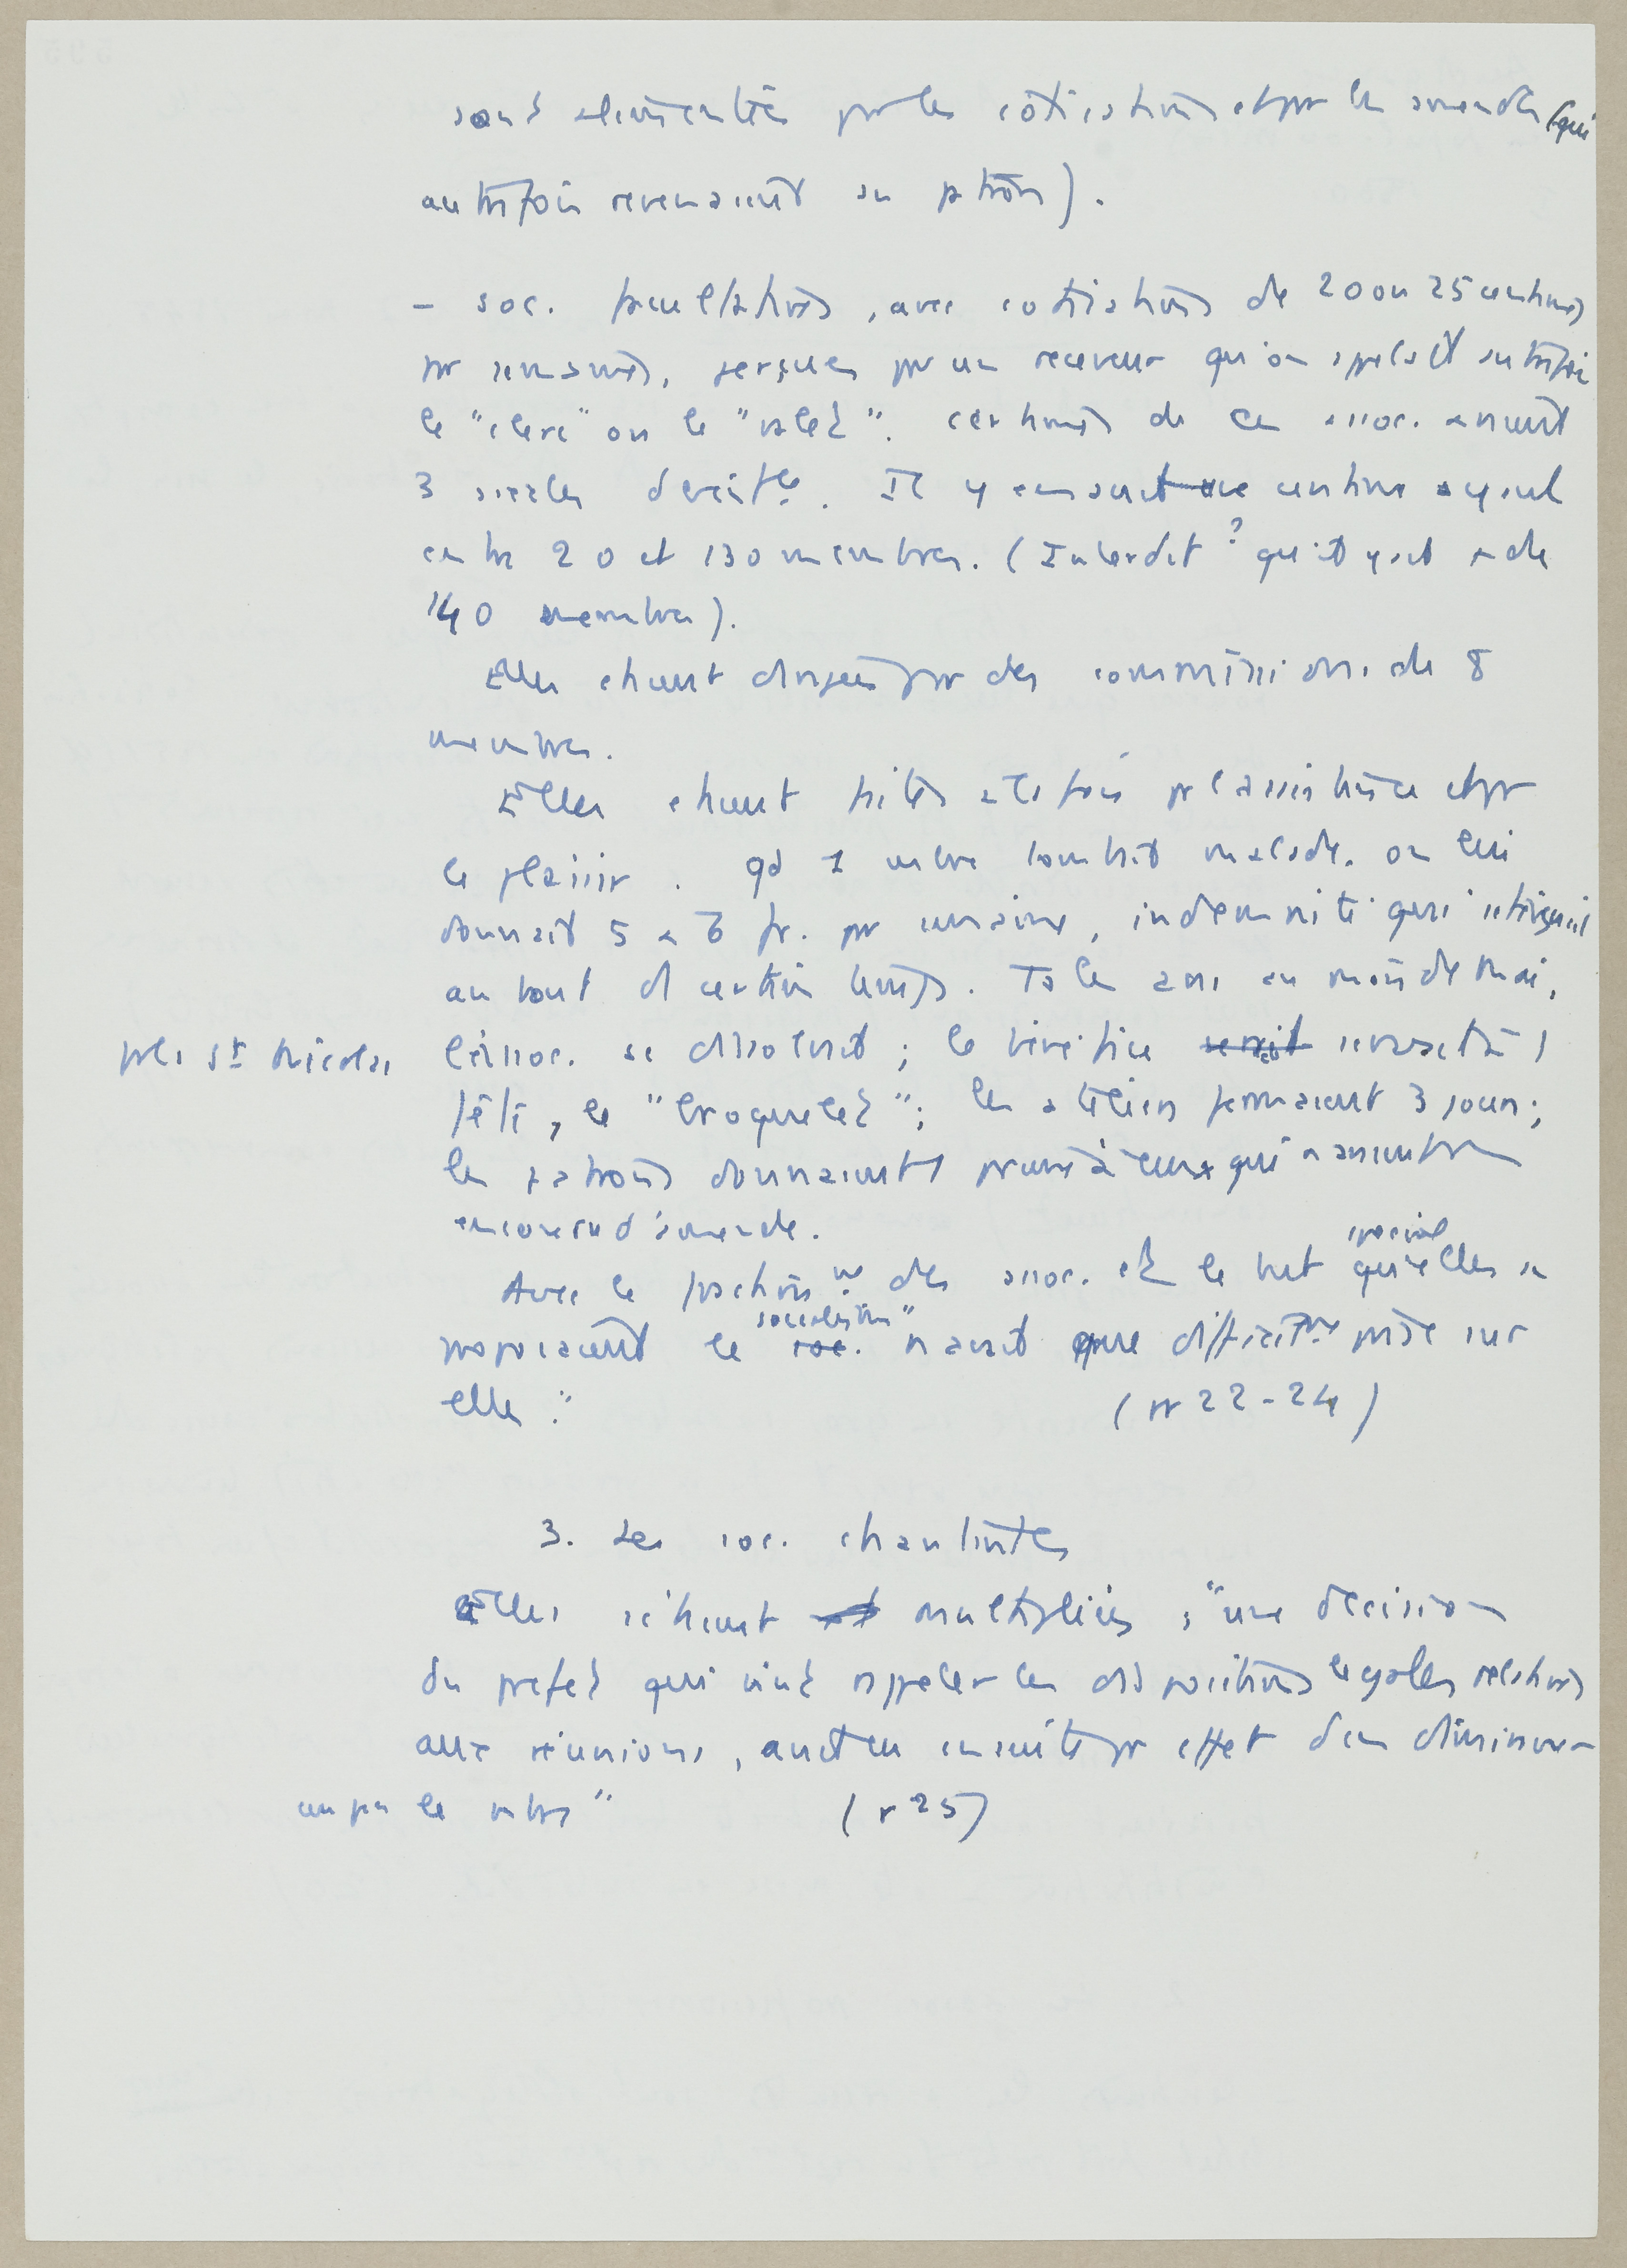 sont alimentées par les cotisations et par les amendes (qui
autrefois revenaient au patron).
- soc. facultatives, avec cotisations de 20 ou 25 centimes
par semaines, perçues par un receveur qu'on appelait autrefois
le "clerc" ou le "valet". certaines de ces assoc. avaient
3 siècles d'exist. Il y en avait une centaine ayant
entre 20 et 130 membres. (Interdit ? qu'il y ait + de
140 membres).
Elles étaient dirigées par des commissions de 8
membres.
Elles étaient faites à la fois pr l'assistance et pr
le plaisir. qd 1 mbre tombait malade. on lui
donnait 5 à 6 fr. par semaine, indemnité qui
au bout d certain temps. Ts les ans au mois de Mai,
pr la St Nicolas, l'assoc. se dissolvait ; le bénéfice serait
fête, le "broquelet" ; les ateliers fermaient 3 jours ;
les patrons donnaient 1 prime à ceux qui n'avaient pas
encouru d'amende.
Avec le fonctionnt des assoc. et le but spécial qu'elles se
proposaient le soc. "socialisme" n'avait que difficilt prise sur
elles". (pp 22-24)
3. Les soc. chantantes
Elles s'étaient multipliées, "une décision
du préfet qui vint rappeler les dispositions légales relatives
aux réunions, eut ensuite pr effet d'en diminuer
un peu le nbre" (p 25)